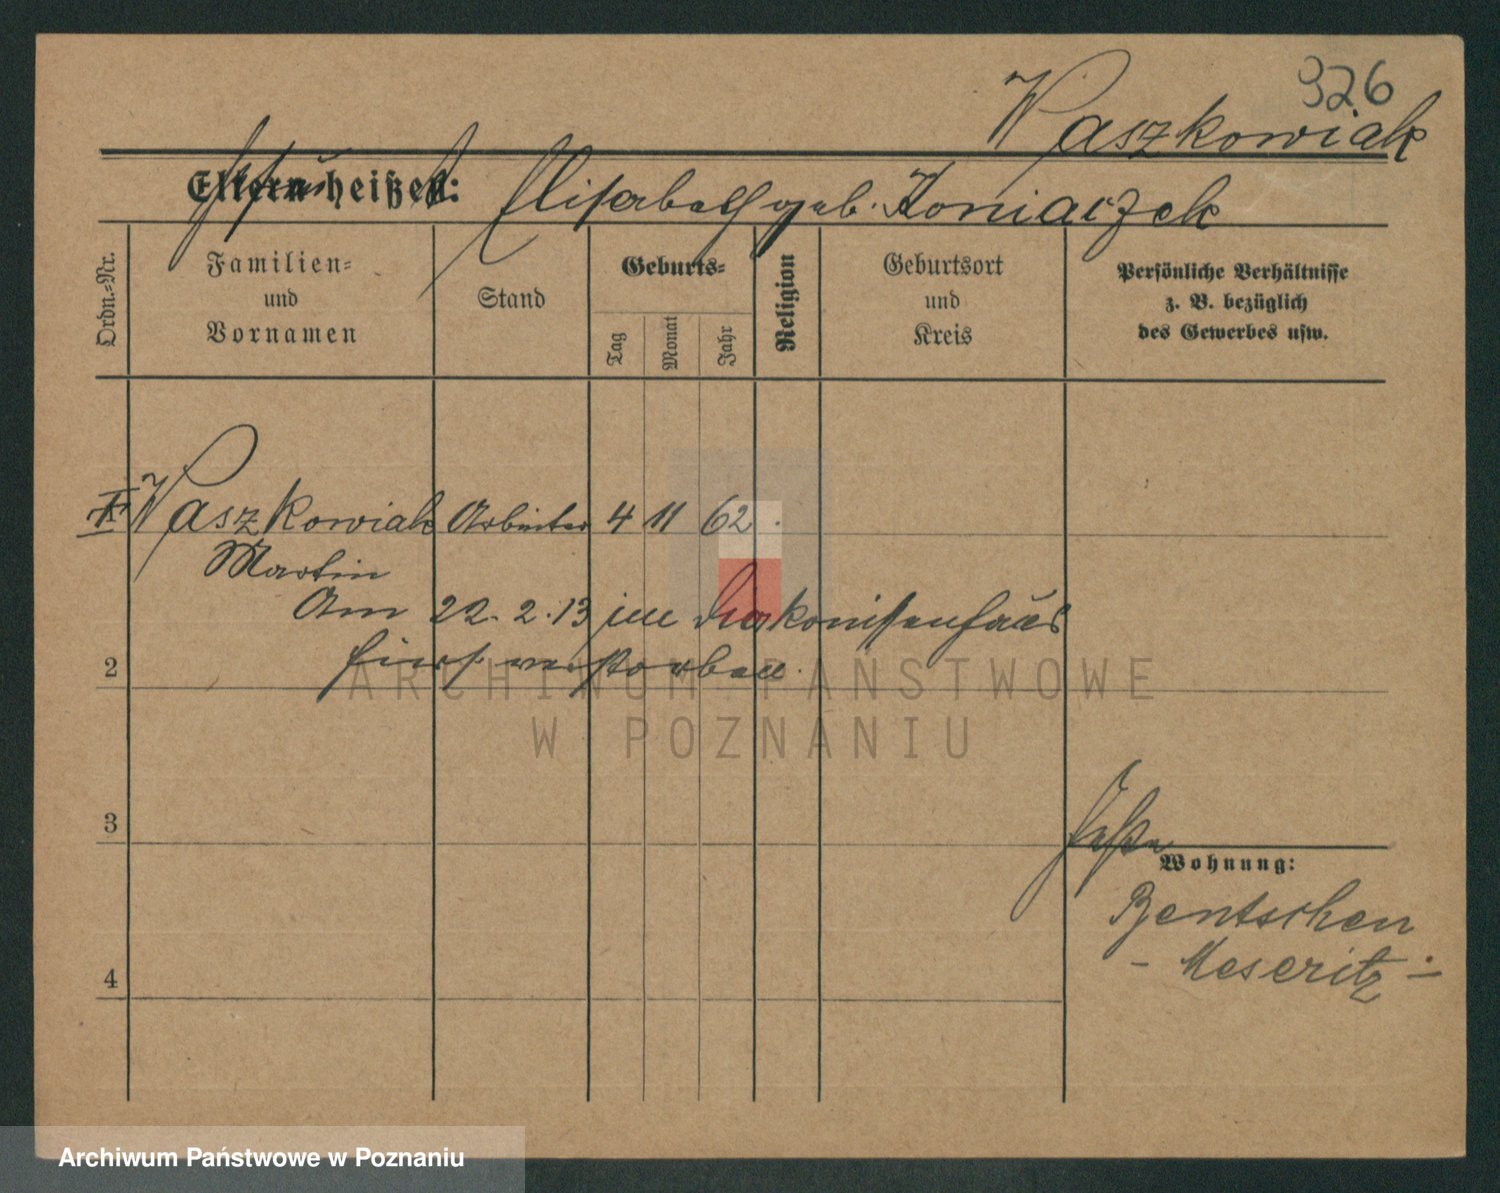 926
Waszkowiak
Eltern heißen:
Elisabeth geb. Koniaczek
Ordn.-Nr.
Familien-
und
Vornamen
Stand
Geburts-
Tag
Monat
Jahr
Religion
Geburtsort
und
Kreis
Persönliche Verhältnisse
z. B. bezüglich
des Gewerbes usw.
Waszkowiak Arbeiter 4 11 62.
Martin
Am 22. 2. 13 im Diakonissenhaus
hiers. verstorben.
2
3
4
Wohnung:
Bentschen
- Meseritz -
ARCHIWUM PAŃSTWOWE
W POZNANIU
Archiwum Państwowe w Poznaniu